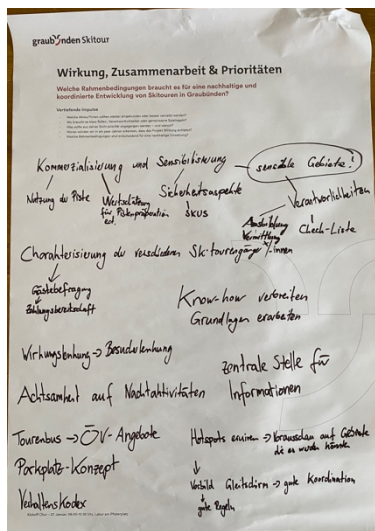 graubünden Skitour
Wirkung, Zusammenarbeit & Prioritäten
Welche Rahmenbedingungen braucht es für eine nachhaltige und
koordinierte Entwicklung von Skitouren in Graubünden?
Vertiefende Impulse
Kommerzialisierung und Sensibilisierung sensible Gebiete!
Nutzung der Piste Wertschätzung Sicherheitsaspekte Verantwortlichkeiten
für Pistenpräparation SKUS Ausbildung Check-Liste
ect. Vermittlung
Charakterisierung der verschiedenen Skitourengänger/-innen
Gästebefragung
Zahlungsbereitschaft
Know-how verbreiten
Grundlagen erarbeiten
Wirkungslenkung → Besucherlenkung
zentrale Stelle für
Informationen
Achtsamkeit auf Nachtaktivitäten
Tourenbus → ÖV-Angebote
Parkplatz-Konzept
Verhaltenskodex
Hotspots eruieren → Vorausschau auf Gebiete
die es werden könnten
Vorbild Gleitschirm → gute Koordination
gute Regeln